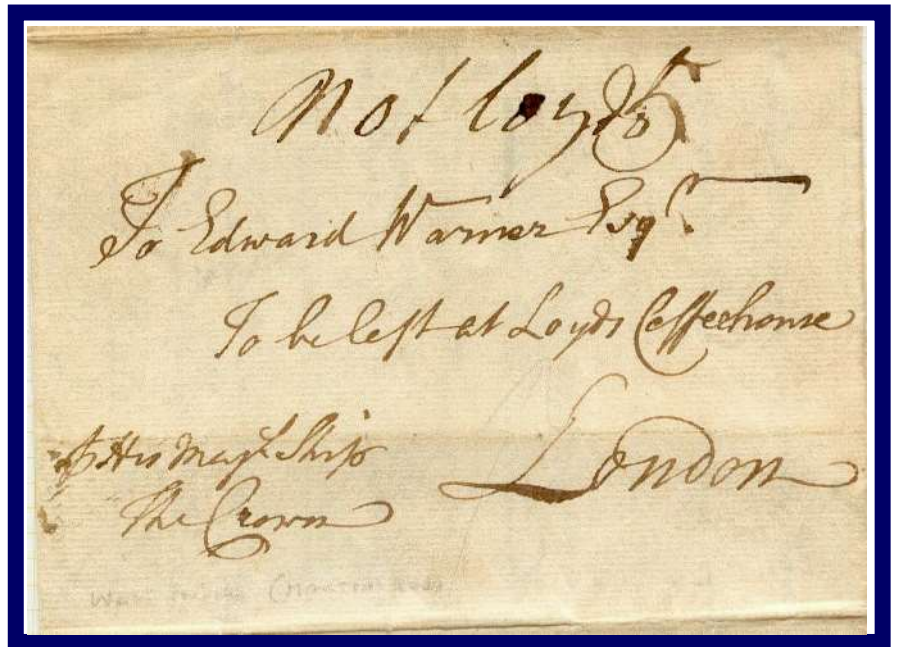 not loyds
To Edward Warner Esqr.
To be left at Loyds Coffeehouse
London
p His Majs Ship
The Crown